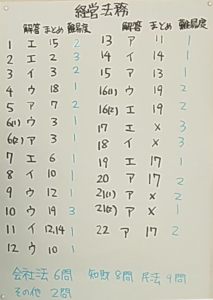 経営法務
解答 まとめ 難易度
1 エ 15 2
2 エ 2 3
3 イ 3 2
4 ウ 18 1
5 ア 7 2
6(1) ウ 3 1
6(2) ア 3 1
7 エ 6 1
8 イ 10 1
9 ウ 12 1
10 ウ 19 3
11 イ 12,14 1
12 ウ 10 1
解答 まとめ 難易度
13 ア 11 1
14 イ 14 1
15 ア 13 1
16(1) ウ 19 2
16(2) エ 19 2
17 エ × 3
18 イ × 3
19 エ 17 1
20 ア 17 2
21(1) ア × 2
21(2) ア × 1
22 ア 17 2
会社法 6問 知財 8問 民法 9問
その他 2問